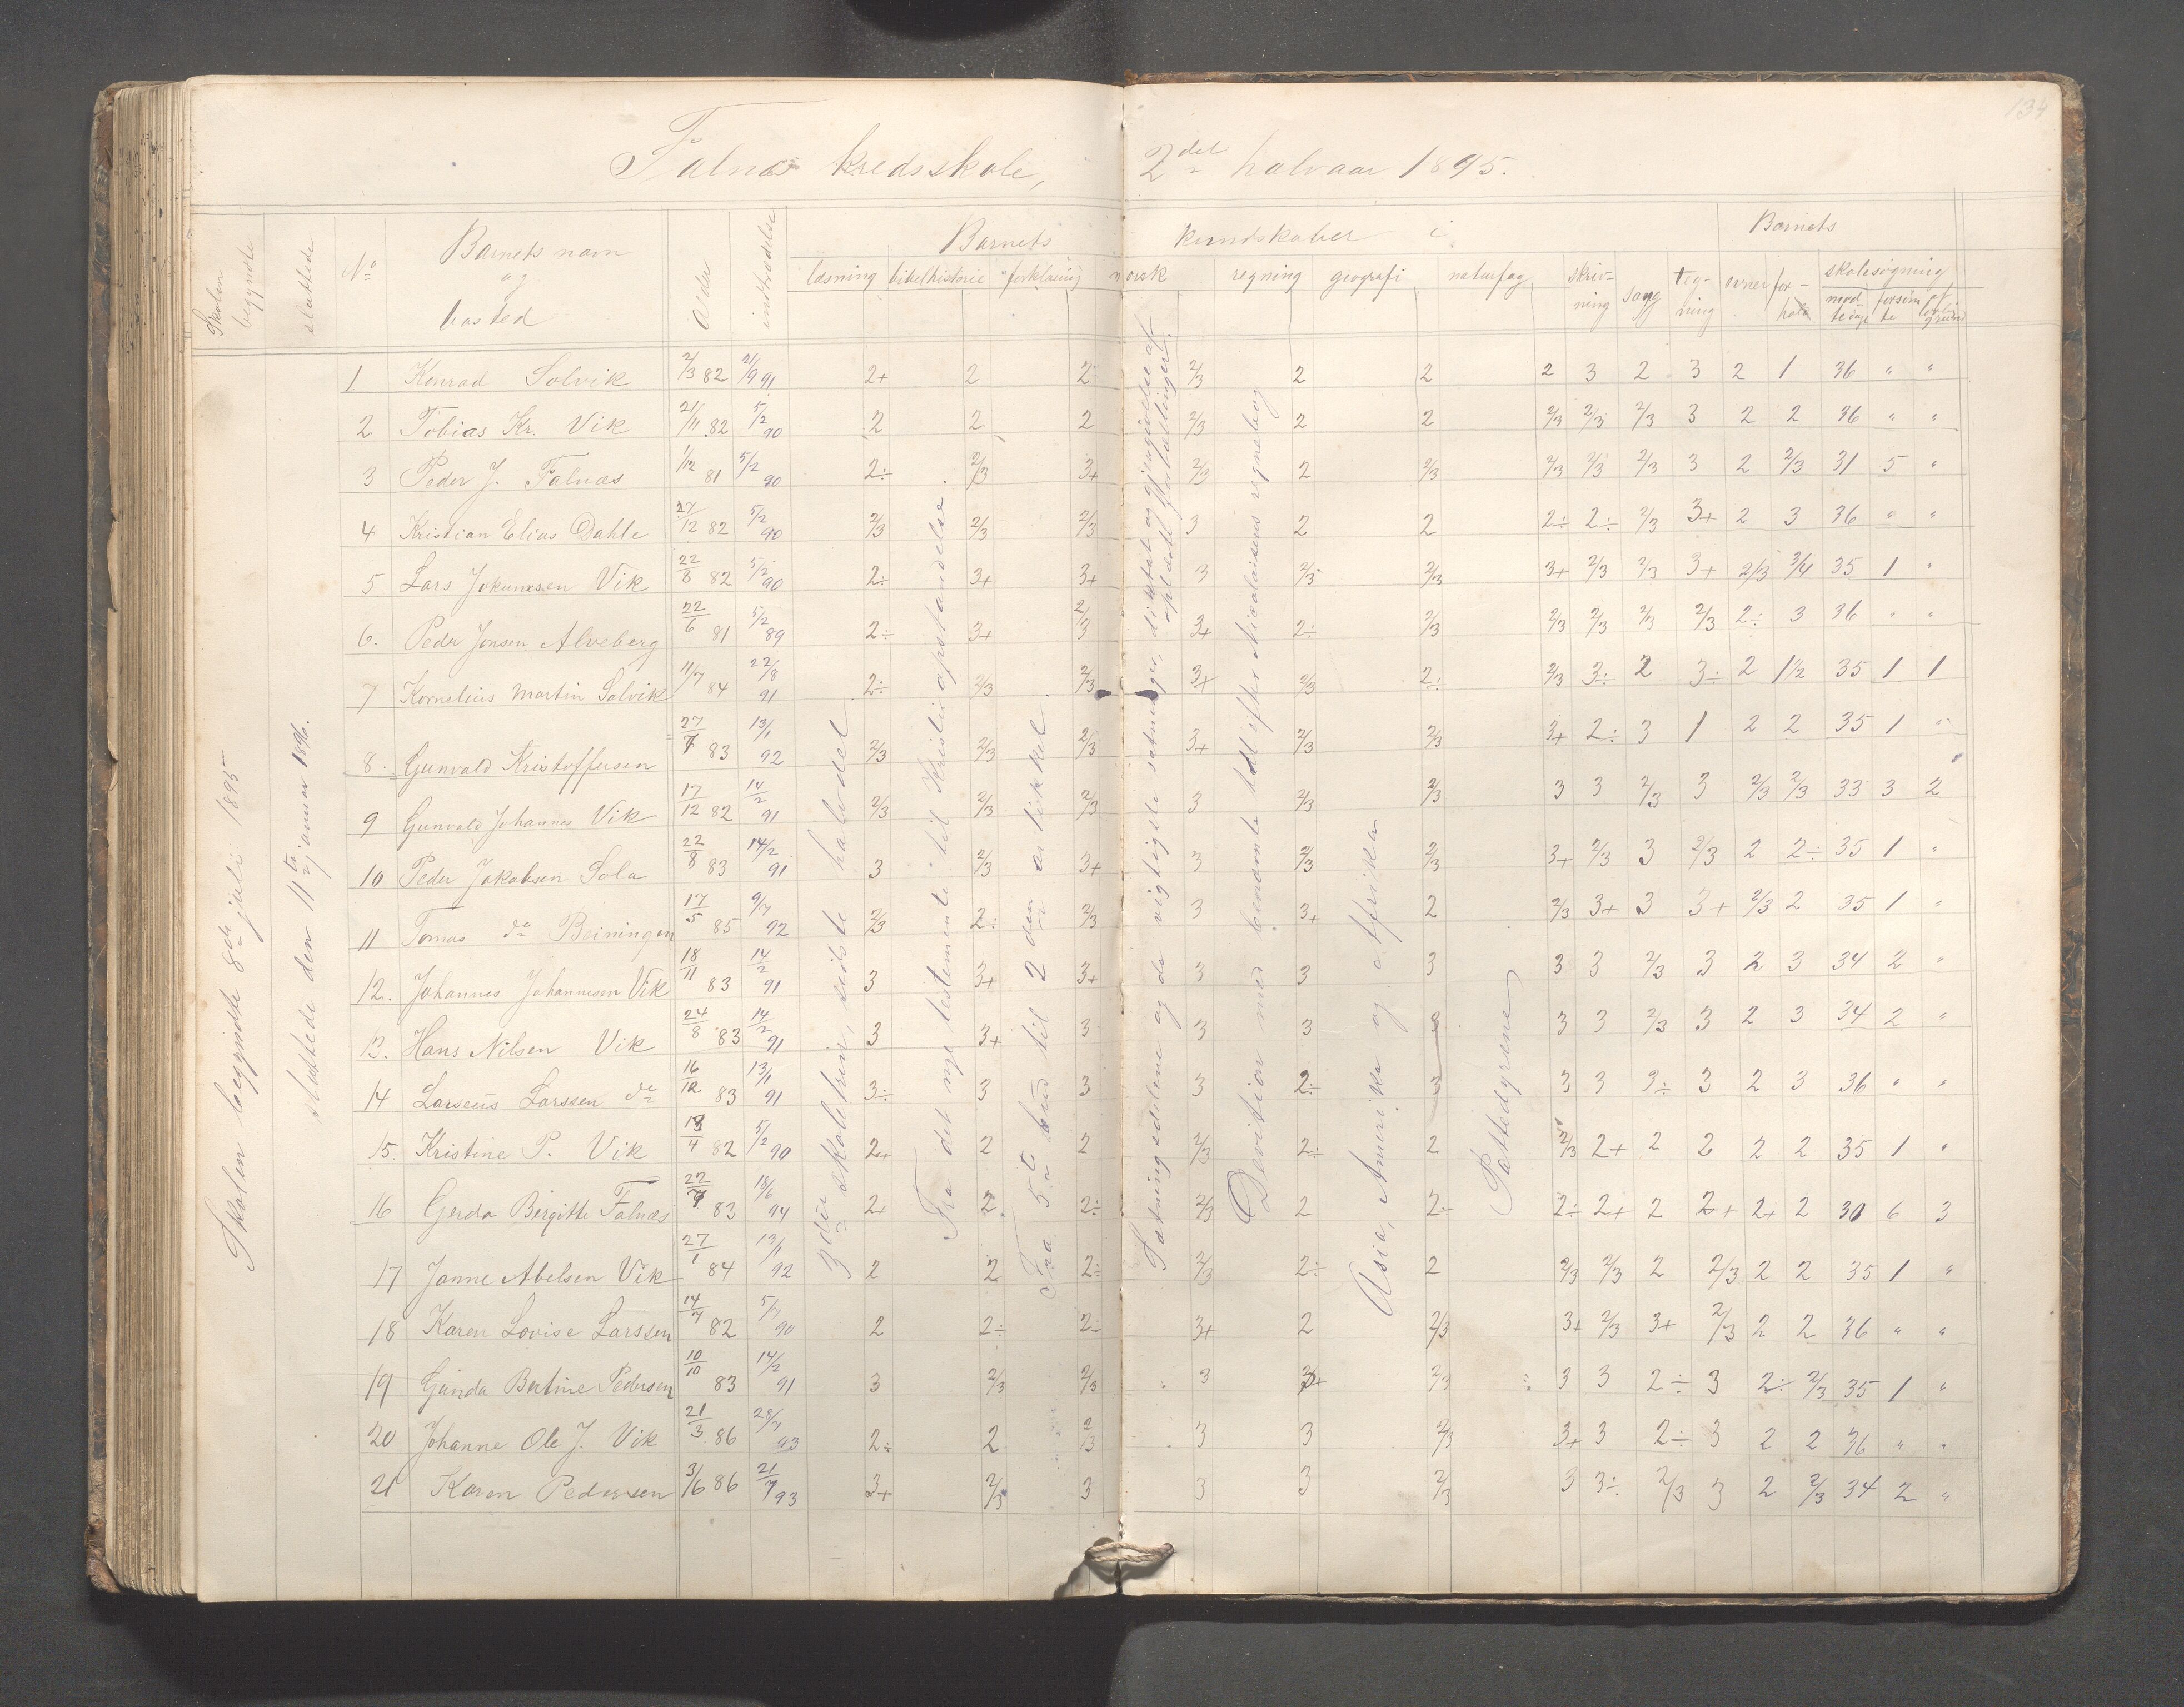 134
Falnæs kredsskole, 2det halvaar 1895.
Skolen begyndte | sluttede | No | Barnets navn og bosted | Alder | indtrædelse | Barnets kundskaber i | Barnets
læsning | bibelhistorie | forklaring | norsk | regning | geografi | naturfag | skriv-ning | sang | teg-ning | evner | for-hold | skolesøgning
mødte dage | forsømte | af lovl. grund
Skolen begyndte 8de juli 1895
sluttede den 11te januar 1896.
3die skoletrin, sidste halvdel
Fra det nye testemente til Kristi opstandelse.
Fra 5te bud til 2den artikkel.
Sætningsdelene og de vigtigste sætninger, diktat og gjengivelse af oplæste fortællinger.
Devition med benævnte tal efter Nicolaisens regnebog
Asia, Amerika og Afrika
Pattedyrene
1. Konrad Solvik 2/3 82 21/9 91 2+ 2 2÷ 2/3 2 2 2 3 2 3 2 1 36 " "
2 Tobias Kr. Vik 21/11 82 5/2 90 2 2 2 2/3 2 2 2/3 2/3 2/3 3 2 2 36 " "
3 Peder J. Falnæs 1/12 81 5/2 90 2÷ 2/3 3+ 2/3 2 2/3 2/3 2/3 2/3 3 2 2/3 31 5 "
4 Kristian Elias Dahle 27/12 82 5/2 90 2/3 2/3 2/3 3 2 2 2÷ 2÷ 2/3 3+ 2 3 36 " "
5 Lars Jokumsen Vik 22/8 82 5/2 90 2÷ 3+ 3+ 3 2/3 2/3 3+ 2/3 2/3 3+ 2/3 3/4 35 1 "
6. Peder Jonsen Alveberg 22/6 81 5/2 89 2÷ 3+ 2/3 3+ 2÷ 2/3 2/3 2/3 2/3 2/3 2÷ 3 36 " "
7 Kornelius Martin Solvik 11/7 84 22/8 91 2÷ 2/3 2/3 3+ 2/3 2÷ 2/3 3÷ 2 3÷ 2 1/2 35 1 1
8. Gunvald Kristoffersen 27/7 83 13/1 92 2/3 2/3 2/3 3+ 2/3 2/3 3+ 2÷ 3 1 2 2 35 1 "
9 Gunvald Johannes Vik 17/12 82 14/2 91 2/3 2/3 2/3 3 2/3 2/3 3 3 2/3 3 2/3 2/3 33 3 2
10 Peder Jakobsen Sola 22/8 83 14/2 91 3 2/3 3+ 3 2/3 2/3 3+ 2/3 3 2/3 2 2÷ 35 1 "
11 Tomas do Beiningen 17/5 85 9/7 92 2/3 2÷ 2/3 3 3+ 2 2/3 3+ 3 3+ 2/3 2 35 1 "
12. Johannes Johannesen Vik 18/11 83 14/2 91 3 3+ 3+ 3 3 3 3 3 2/3 3 2 3 34 2 "
13. Hans Nilsen Vik 24/8 83 14/2 91 3 3+ 3 3 3 3 3 3 2/3 3 2 3 34 2 "
14 Larseus Larssen do 16/12 83 13/1 91 3÷ 3 3 3 2÷ 3 3 3 3÷ 3 2 3 36 " "
15. Kristine P. Vik 13/4 82 5/2 90 2+ 2 2 2/3 2÷ 2 2/3 2+ 2 2 2 2 35 1 "
16 Gerda Birgitte Falnæs 22/9 83 18/6 94 2+ 2 2÷ 2/3 2 2÷ 2÷ 2+ 2 2+ 2+ 2 30 6 3
17 Janne Abelsen Vik 27/1 84 13/1 92 2 2 2÷ 2/3 2÷ 2 2/3 2/3 2 2/3 2 2 35 1 "
18 Karen Lovise Larssen 14/7 82 5/7 90 2 2÷ 2÷ 3+ 2 2/3 3+ 2/3 3+ 2/3 2 2 36 " "
19 Gunda Bertine Pedersen 10/10 83 14/2 91 3 2/3 2/3 3 3+ 2/3 3 3 2÷ 3 2÷ 2/3 35 1 "
20 Johanne Ole J. Vik 21/3 86 28/7 93 2÷ 2 2/3 3 3 2/3 3+ 3 2÷ 3 2 2 36 " "
21 Karen Pedersen 3/6 86 21/7 93 3+ 2/3 3 3 3 2/3 3 3÷ 2/3 3 2 2/3 34 2 "